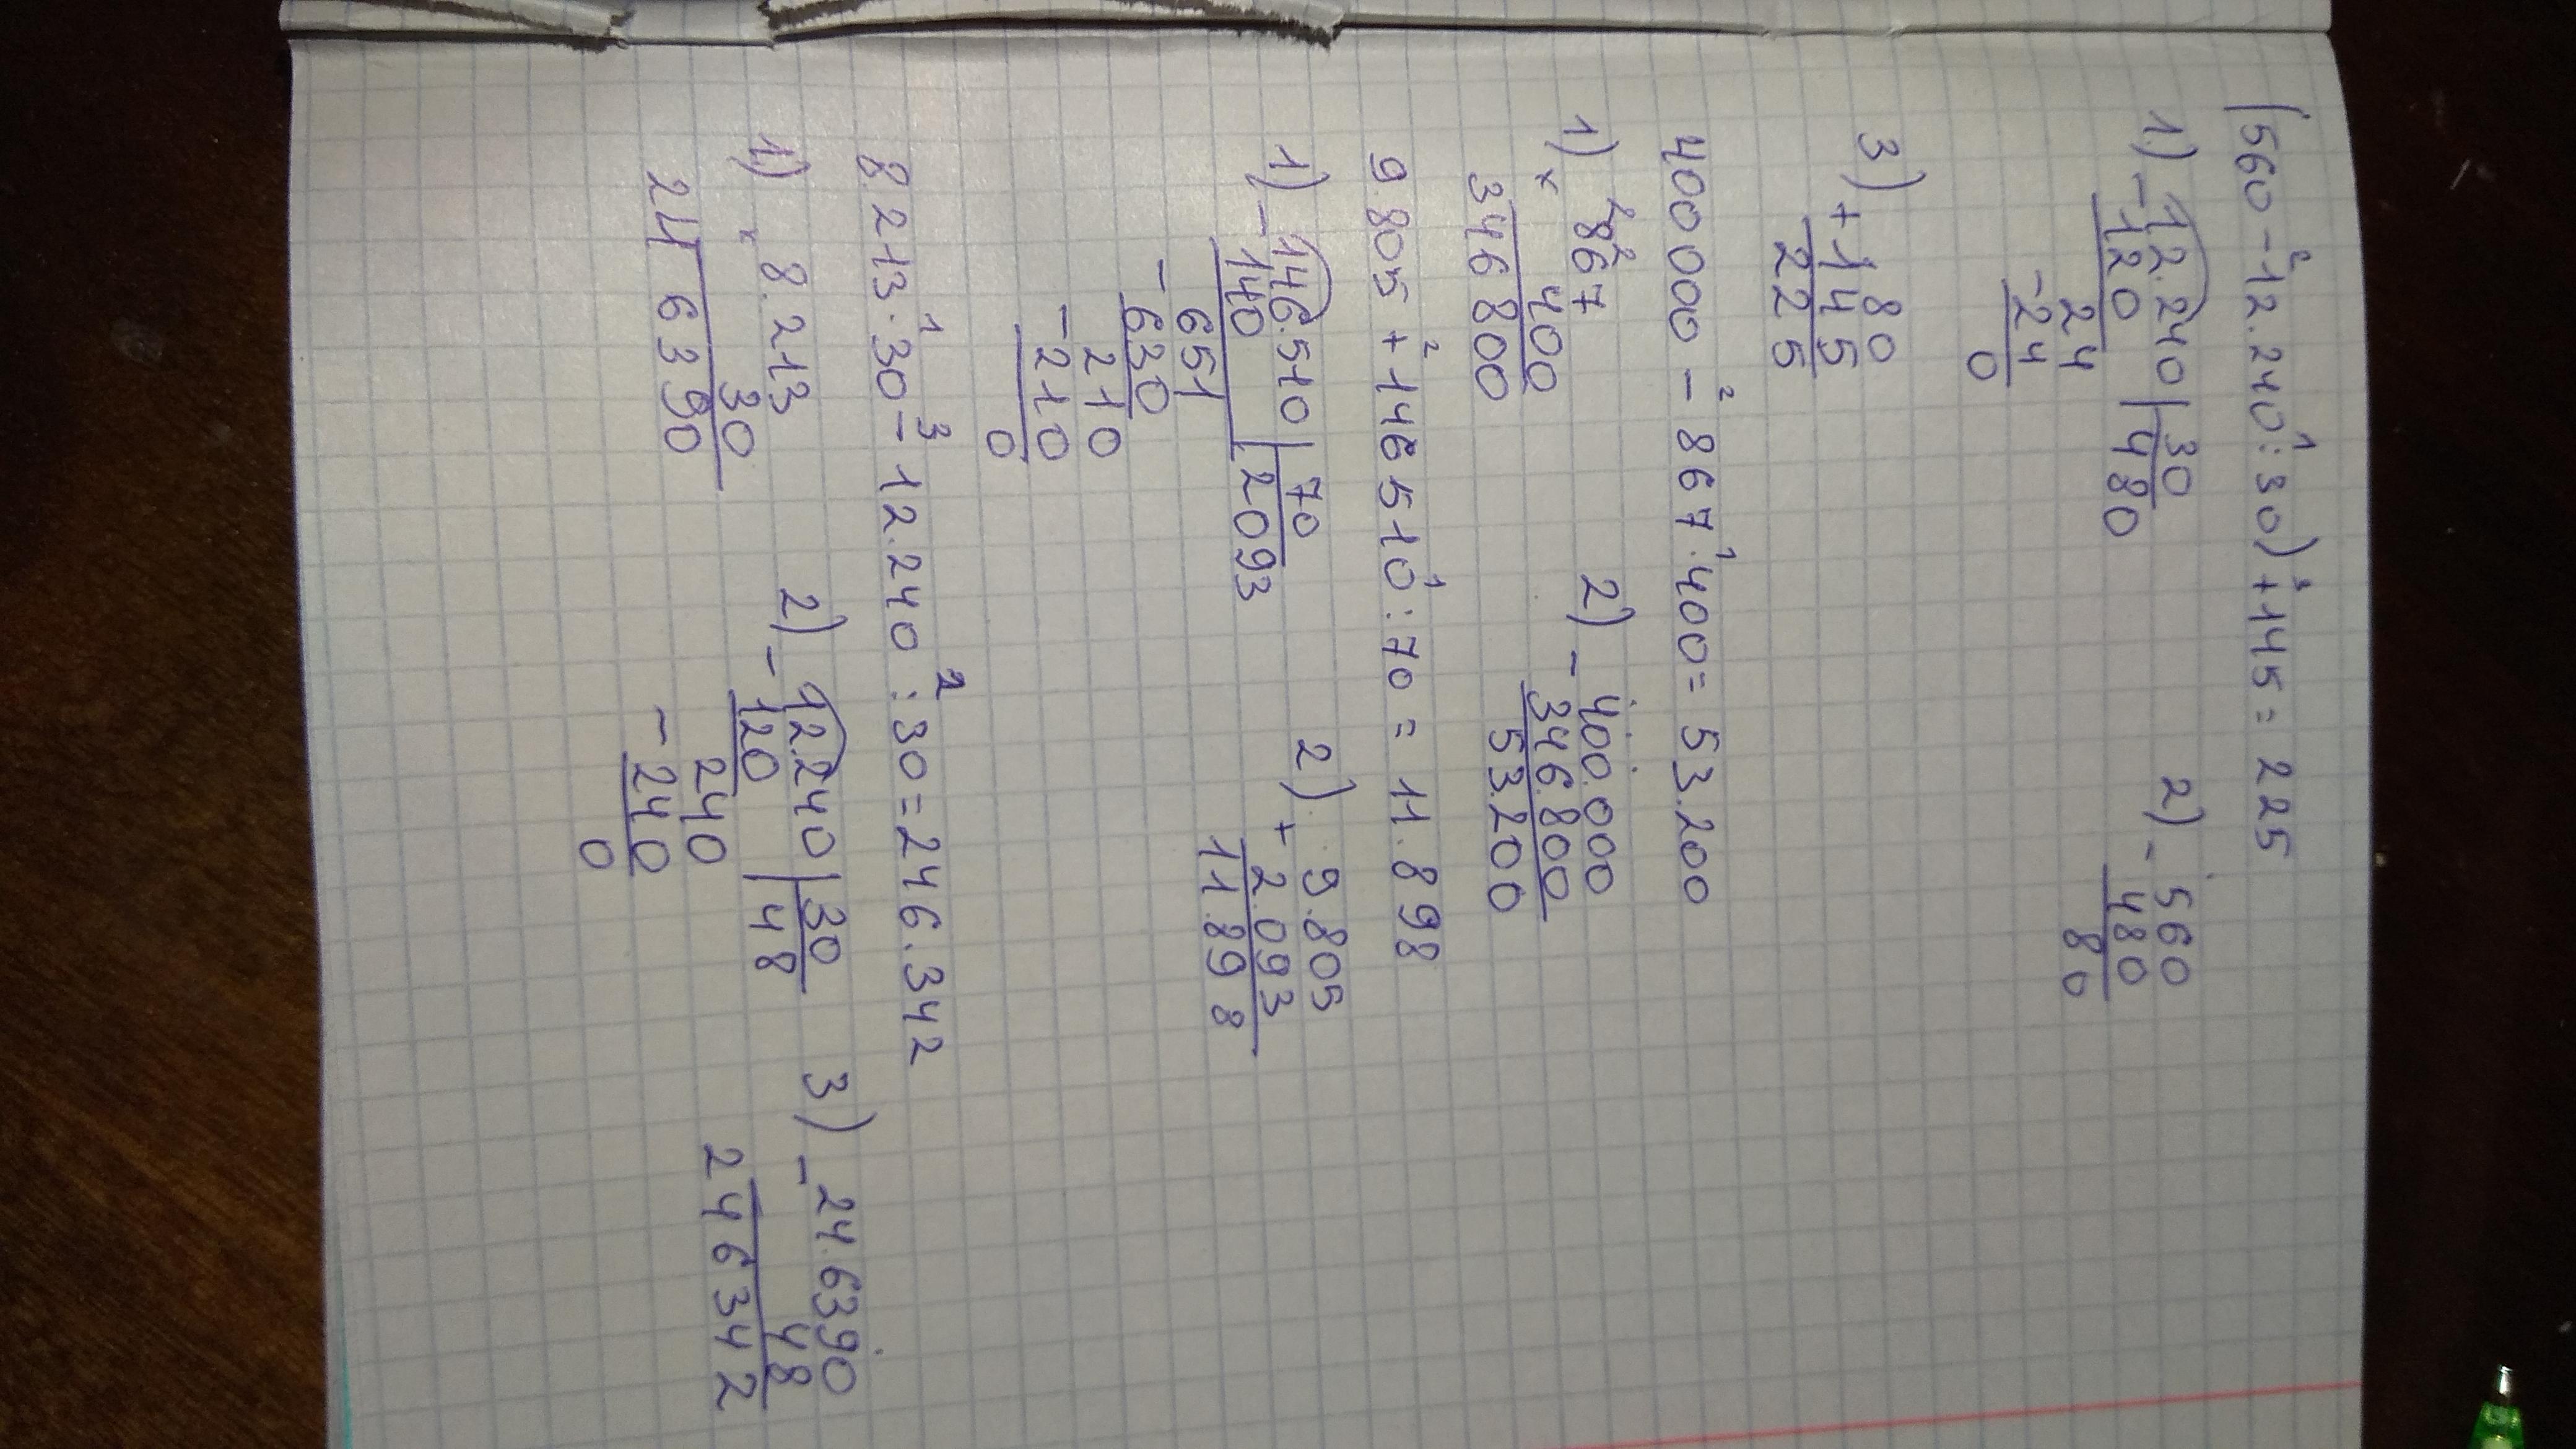 (560 - 12.240 : 30) + 145 = 225
2 1 3
1.) - 12.240 | 30
120 480
24
- 24
0
2) - 560
480
80
3) + 80
145
225
400 000 - 867 · 400 = 53.200
2 1
1) x 867
400
346 800
2) - 400.000
346.800
53.200
9 805 + 146 510 : 70 = 11.898
2 1
1) - 146.510 | 70
140 2093
651
- 630
210
- 210
0
2) + 9.805
2.093
11.898
8.213 · 30 - 12.240 : 30 = 246.342
1 3 2
1) x 8.213
30
246390
2) - 12.240 | 30
120 48
240
- 240
0
3) - 24.6390
48
246342